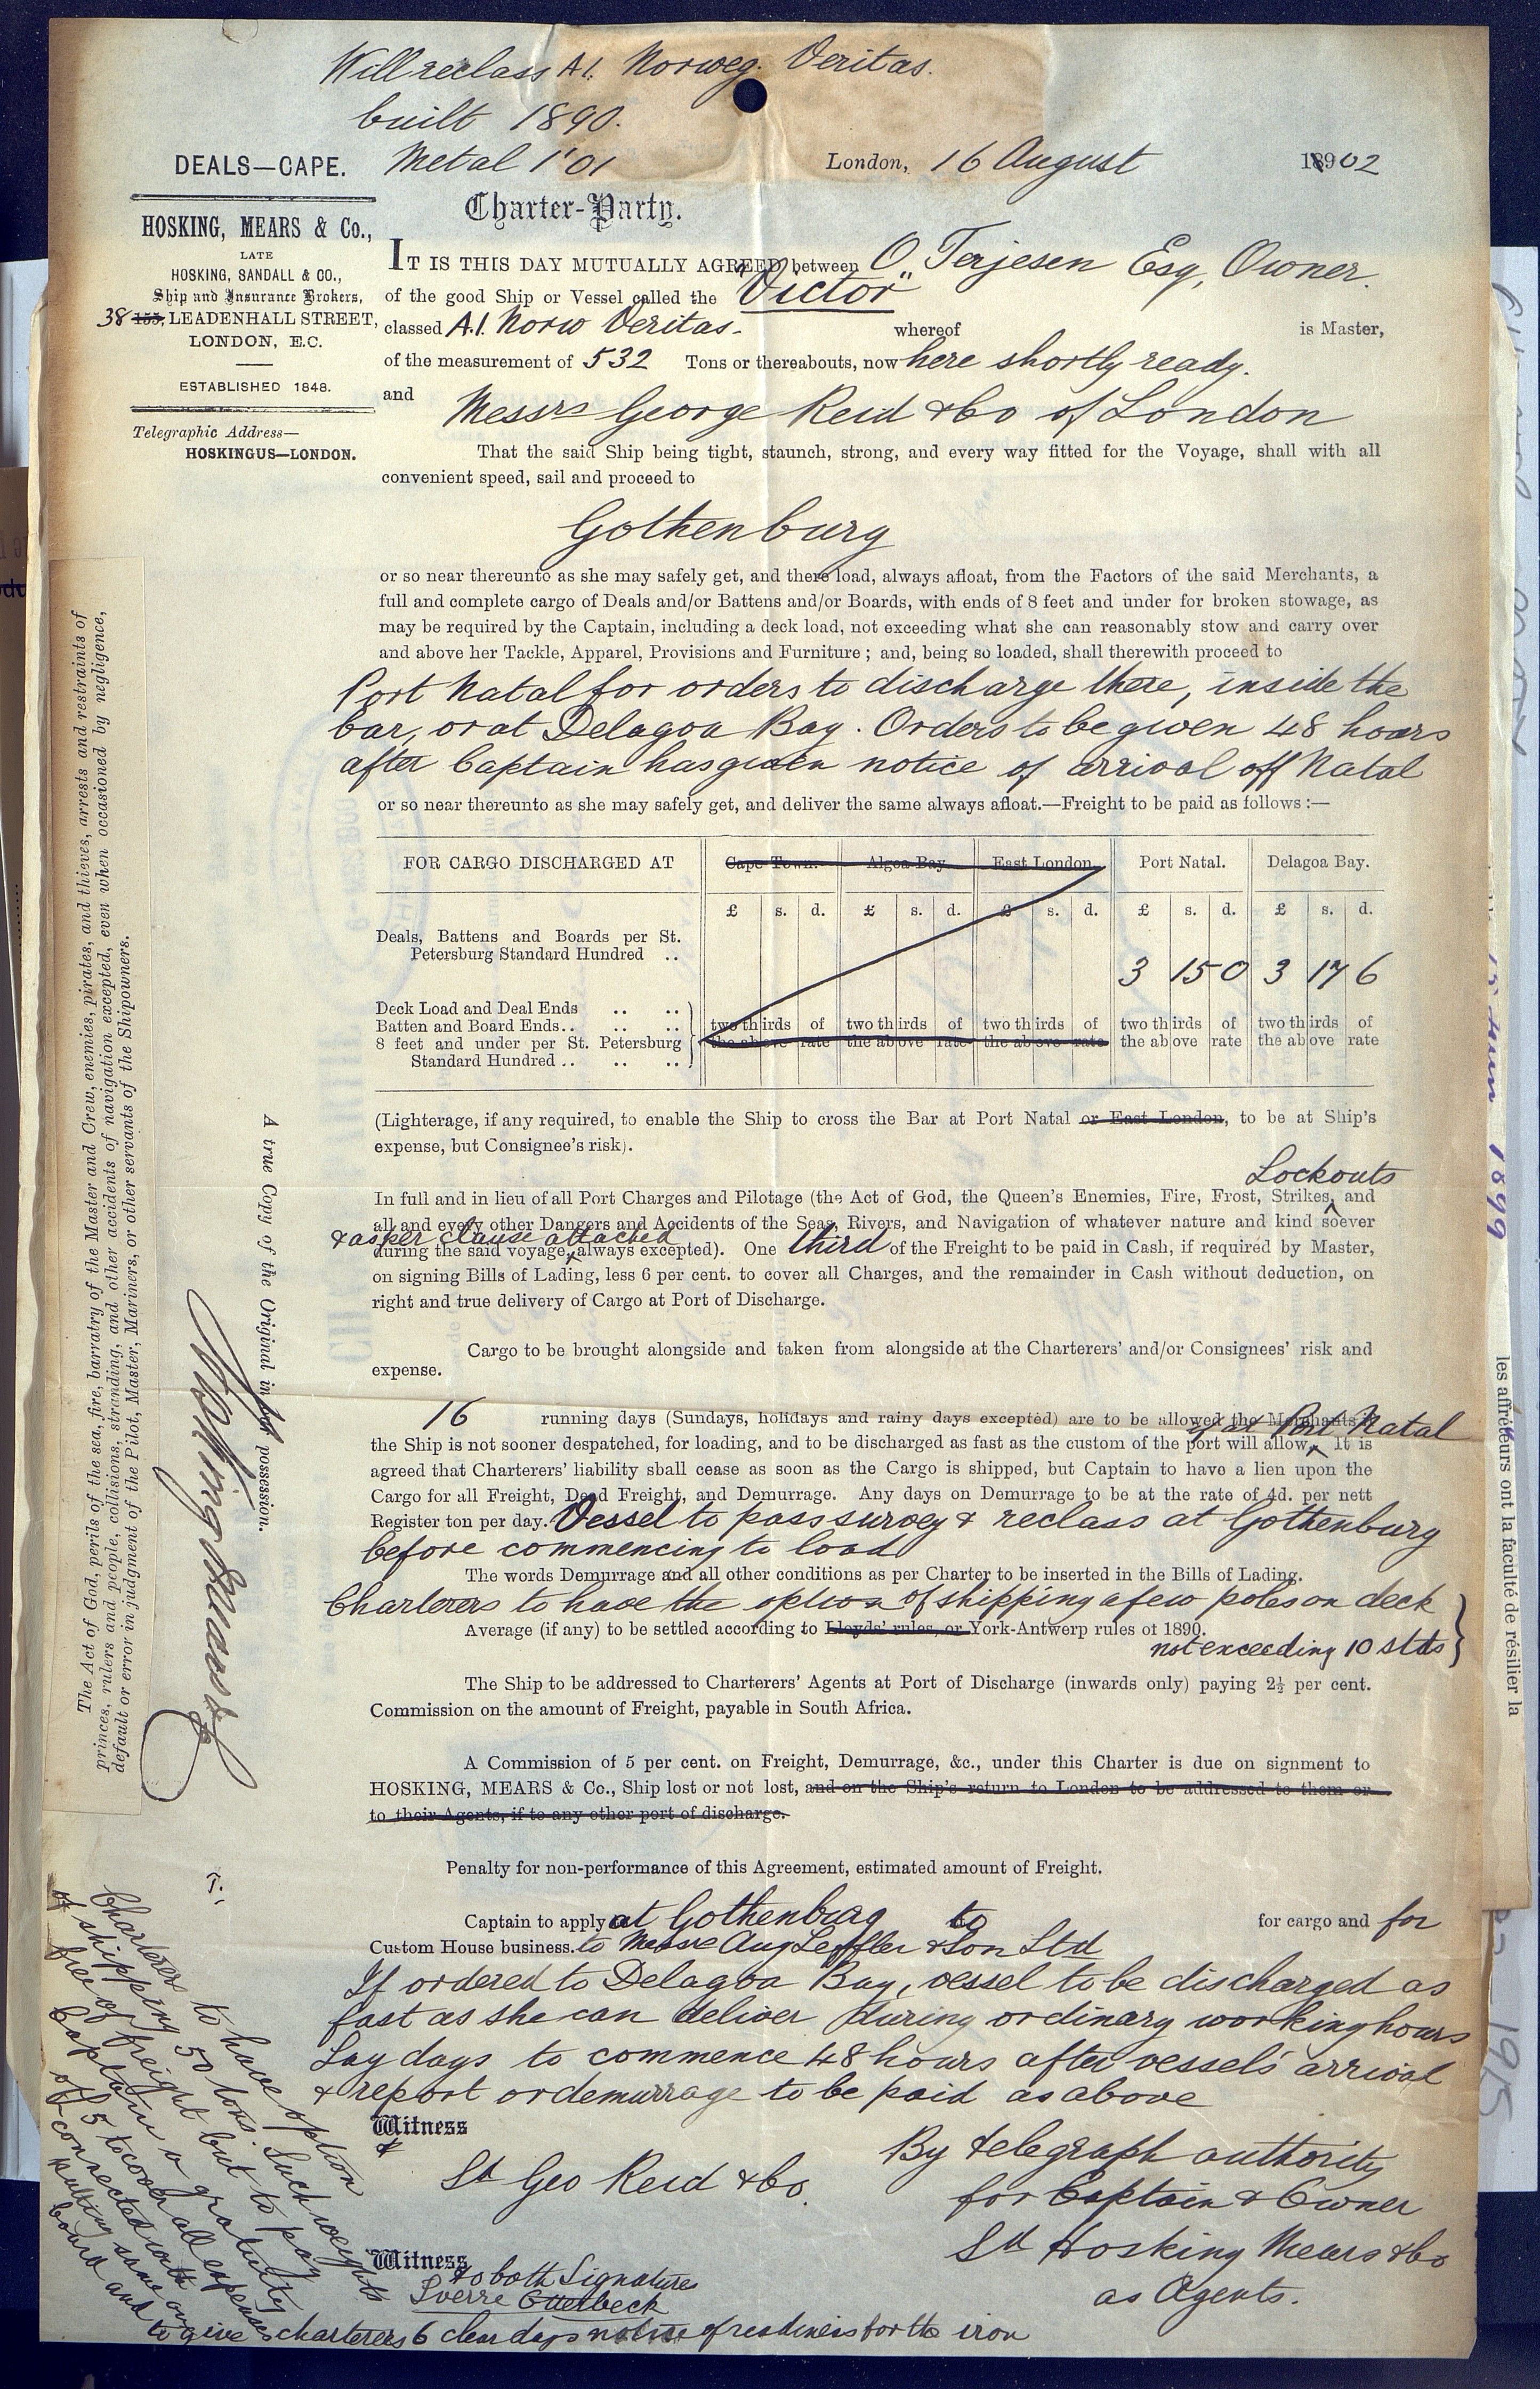 Will reclass A1. Norweg. Veritas.
built 1890.
Metal 1'01
DEALS—CAPE.
London, 16 August 18902
HOSKING, MEARS & Co.,
LATE
HOSKING, SANDALL & CO.,
Ship and Insurance Brokers,
38 155, LEADENHALL STREET,
LONDON, E.C.
ESTABLISHED 1848.
Telegraphic Address—
HOSKINGUS—LONDON.
Charter-Party.
IT IS THIS DAY MUTUALLY AGREED between O. Terjesen Esq, Owner.
of the good Ship or Vessel called the "Victor"
classed A.1. Norw Veritas. whereof is Master,
of the measurement of 532 Tons or thereabouts, now here shortly ready.
and Messrs George Reid & Co of London
That the said Ship being tight, staunch, strong, and every way fitted for the Voyage, shall with all
convenient speed, sail and proceed to
Gothenburg
or so near thereunto as she may safely get, and there load, always afloat, from the Factors of the said Merchants, a
full and complete cargo of Deals and/or Battens and/or Boards, with ends of 8 feet and under for broken stowage, as
may be required by the Captain, including a deck load, not exceeding what she can reasonably stow and carry over
and above her Tackle, Apparel, Provisions and Furniture; and, being so loaded, shall therewith proceed to
Port Natal for orders to discharge there, inside the
bar, or at Delagoa Bay. Orders to be given 48 hours
after Captain has given notice of arrival off Natal
or so near thereunto as she may safely get, and deliver the same always afloat.—Freight to be paid as follows:—
FOR CARGO DISCHARGED AT Cape Town. Algoa Bay. East London. Port Natal. Delagoa Bay.
£ s. d. £ s. d. £ s. d. £ s. d. £ s. d.
Deals, Battens and Boards per St.
Petersburg Standard Hundred .. 3 15 0 3 17 6
Deck Load and Deal Ends .. ..
Batten and Board Ends.. .. .. two thirds of two thirds of two thirds of two thirds of two thirds of
8 feet and under per St. Petersburg the above rate the above rate the above rate the above rate the above rate
Standard Hundred .. .. ..
(Lighterage, if any required, to enable the Ship to cross the Bar at Port Natal or East London, to be at Ship's
expense, but Consignee's risk).
Lockouts
In full and in lieu of all Port Charges and Pilotage (the Act of God, the Queen's Enemies, Fire, Frost, Strikes, and
all and every other Dangers and Accidents of the Seas, Rivers, and Navigation of whatever nature and kind soever
& as per clause attached
during the said voyage, always excepted). One third of the Freight to be paid in Cash, if required by Master,
on signing Bills of Lading, less 6 per cent. to cover all Charges, and the remainder in Cash without deduction, on
right and true delivery of Cargo at Port of Discharge.
Cargo to be brought alongside and taken from alongside at the Charterers' and/or Consignees' risk and
expense.
16 running days (Sundays, holidays and rainy days excepted) are to be allowed the Merchants if
if at Port Natal
the Ship is not sooner despatched, for loading, and to be discharged as fast as the custom of the port will allow. It is
agreed that Charterers' liability shall cease as soon as the Cargo is shipped, but Captain to have a lien upon the
Cargo for all Freight, Dead Freight, and Demurrage. Any days on Demurrage to be at the rate of 4d. per nett
Register ton per day. Vessel to pass survey & reclass at Gothenburg
before commencing to load
The words Demurrage and all other conditions as per Charter to be inserted in the Bills of Lading.
Charterers to have the option of shipping a few poles on deck
Average (if any) to be settled according to Lloyds' rules, or York-Antwerp rules of 1890.
not exceeding 10 stds
The Ship to be addressed to Charterers' Agents at Port of Discharge (inwards only) paying 2½ per cent.
Commission on the amount of Freight, payable in South Africa.
A Commission of 5 per cent. on Freight, Demurrage, &c., under this Charter is due on signment to
HOSKING, MEARS & Co., Ship lost or not lost, and on the Ship's return to London to be addressed to them or
to their Agents, if to any other port of discharge.
Penalty for non-performance of this Agreement, estimated amount of Freight.
Captain to apply at Gothenburg to for cargo and for
Custom House business. to Messrs Aug Leffler & Son Ltd
If ordered to Delagoa Bay, vessel to be discharged as
fast as she can deliver during ordinary working hours
Lay days to commence 48 hours after vessels' arrival
& report or demurrage to be paid as above
Witness
Sd Geo Reid & Co.
By telegraph authority
for Captain & Owner
Sd Hosking Mears & Co
as Agents.
Witness to both Signatures
Sverre Otterbeck
Charterers to have option
of shipping 50 tons. Such weights
free of freight but to pay
Captain a gratuity
of 5 to cover all expenses
connected with
putting same on
board and
to give charterers 6 clear days notice of readiness for the iron
The Act of God, perils of the sea, fire, barratry of the Master and Crew, enemies, pirates, and thieves, arrests and restraints of
princes, rulers and people, collisions, stranding, and other accidents of navigation excepted, even when occasioned by negligence,
default or error in judgment of the Pilot, Master, Mariners, or other servants of the Shipowners.
A true Copy of the Original in our possession.
Hosking Mears & Co
les affréteurs ont la faculté de résilier la
1899
1915